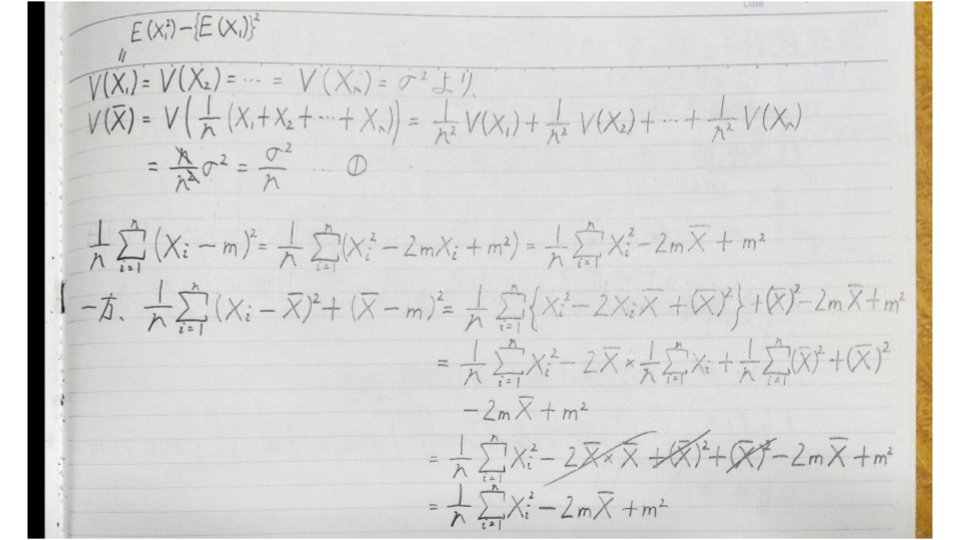 Date
E(Xᵢ²)-{E(X₁)}²
〃
V(X₁)=V(X₂)=…=V(Xₙ)=σ²より、
V(X̄)=V(1/n(X₁+X₂+…+Xₙ))=1/n² V(X₁)+1/n² V(X₂)+…+1/n² V(Xₙ)
=n/n² σ²=σ²/n … ①
1/n Σ_{i=1}^{n}(Xᵢ-m)²=1/n Σ_{i=1}^{n}(Xᵢ²-2mXᵢ+m²)=1/n Σ_{i=1}^{n}Xᵢ²-2mX̄+m²
一方、1/n Σ_{i=1}^{n}(Xᵢ-X̄)²+(X̄-m)²=1/n Σ_{i=1}^{n}{Xᵢ²-2XᵢX̄+(X̄)²}+(X̄)²-2mX̄+m²
=1/n Σ_{i=1}^{n}Xᵢ²-2X̄×1/n Σ_{i=1}^{n}Xᵢ+1/n Σ_{i=1}^{n}(X̄)²+(X̄)²
-2mX̄+m²
=1/n Σ_{i=1}^{n}Xᵢ²-2X̄×X̄+(X̄)²+(X̄)²-2mX̄+m²
=1/n Σ_{i=1}^{n}Xᵢ²-2mX̄+m²